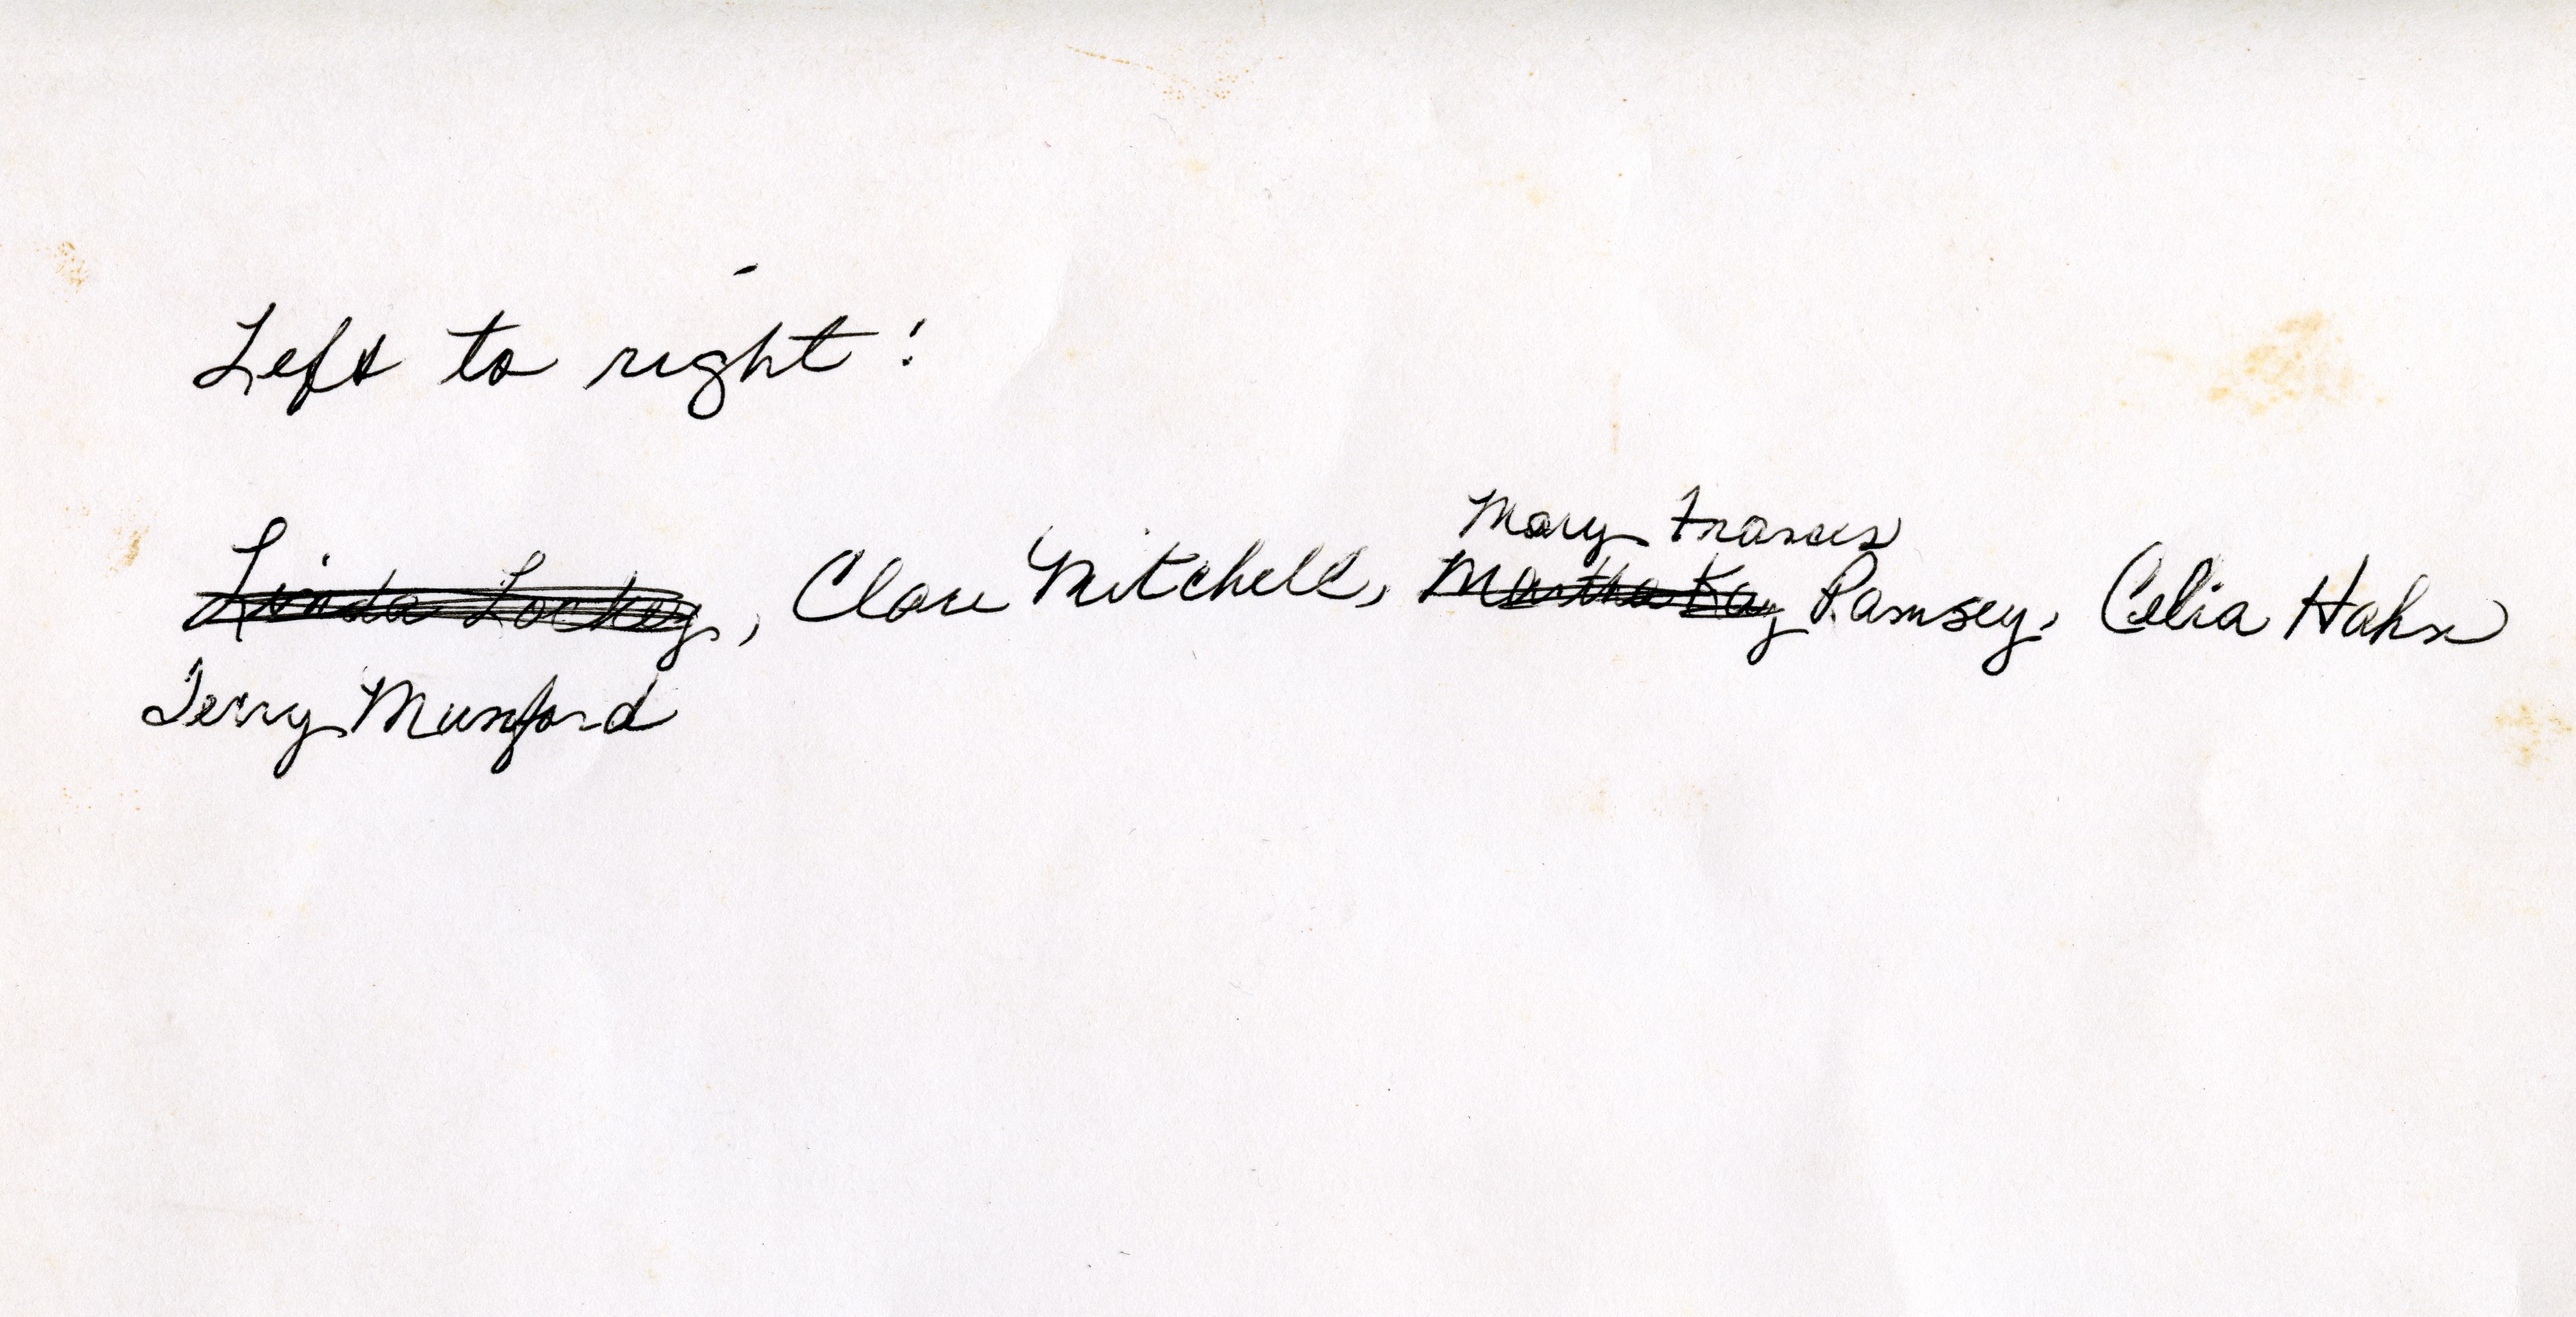 Left to right:
Mary Frances
Linda Lockey, Clare Mitchell, Martha Kay Ramsey, Celia Hahn
Terry Munford